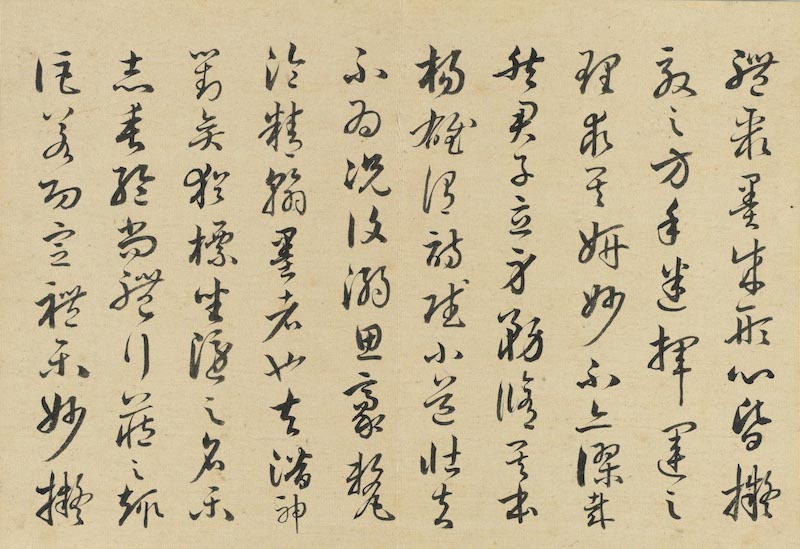 體聚墨成形心昏擬
效之方手迷揮運之
理求其妍妙不亦謬哉
然君子立身務脩其本
楊雄謂詩賦小道壯夫
不為況復溺思豪氂
淪精翰墨者也夫潛神
對弈猶標坐隱之名樂
志垂綸尚體行藏之趣
詎若功宣禮樂妙擬